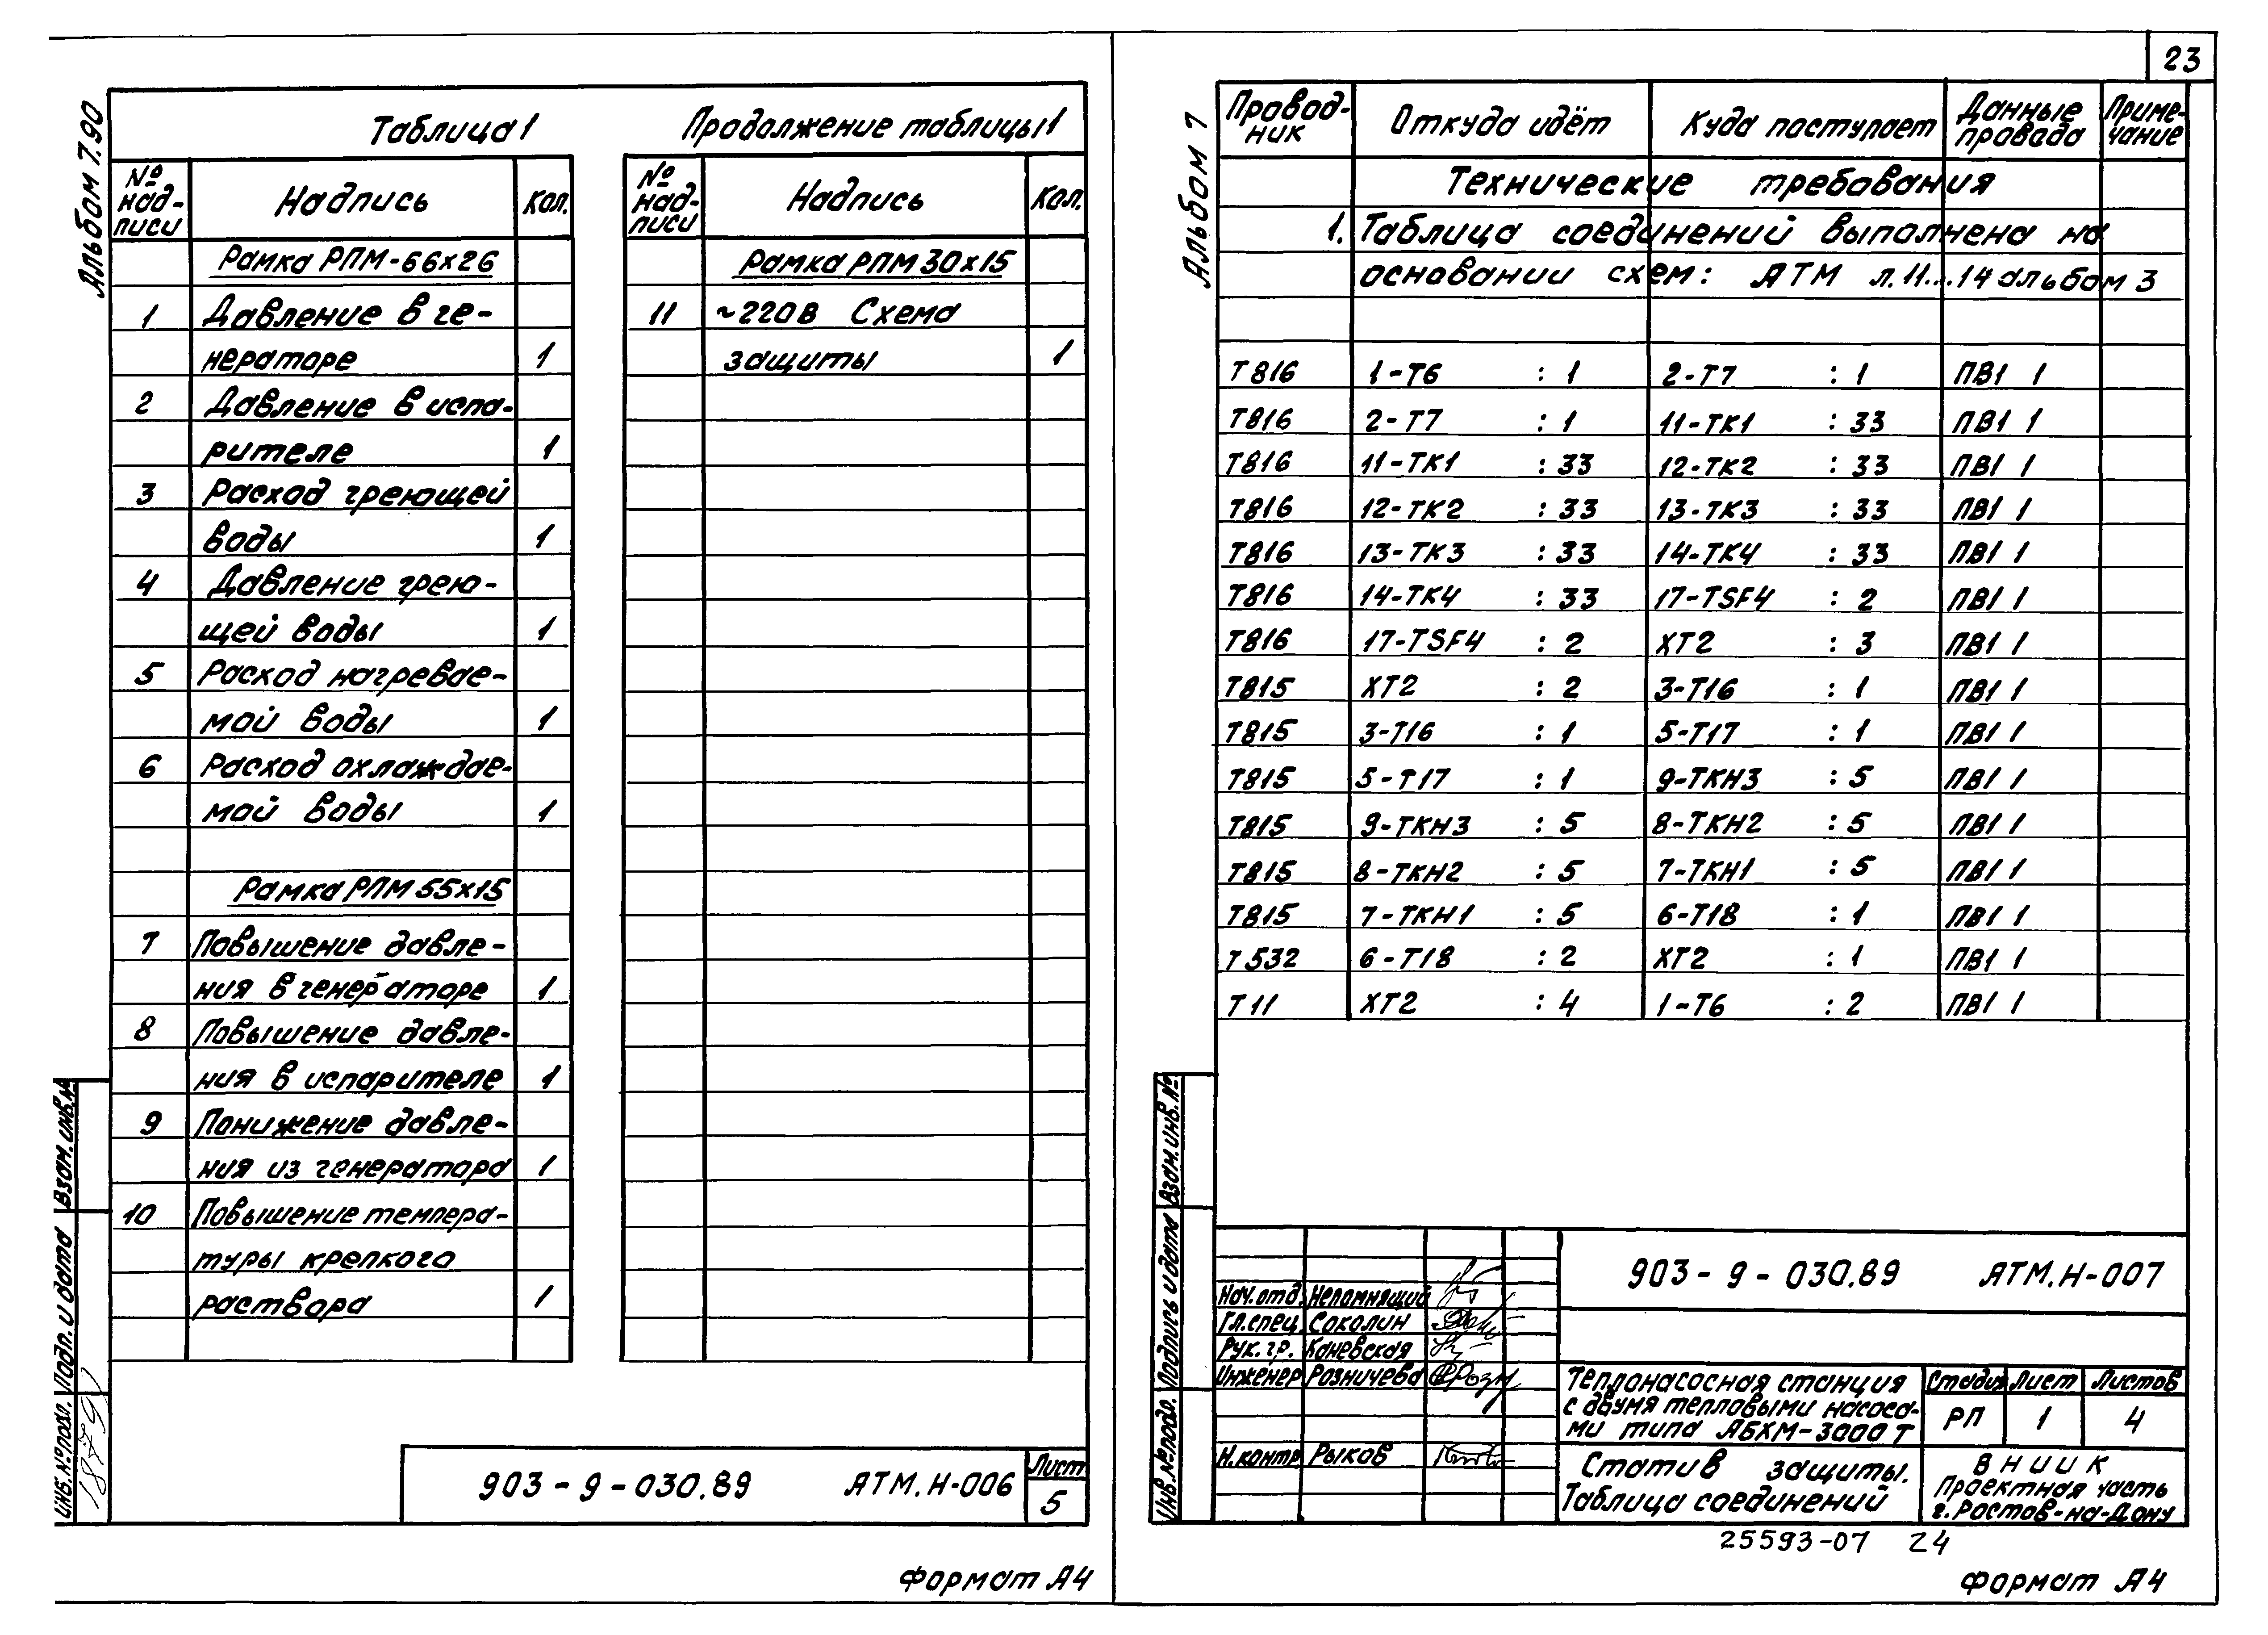 23
Альбом 7.90
Таблица 1
Продолжение таблицы 1
№ над-писи Надпись Кол.
Рамка РПМ-66х26
1 Давление в ге-
нераторе 1
2 Давление в испа-
рителе 1
3 Расход греющей
воды 1
4 Давление грею-
щей воды 1
5 Расход нагревае-
мой воды 1
6 Расход охлаждае-
мой воды 1
Рамка РПМ 55х15
7 Повышение давле-
ния в генераторе 1
8 Повышение давле-
ния в испарителе 1
9 Понижение давле-
ния из генератора 1
10 Повышение темпера-
туры крепкого
раствора 1
№ над-писи Надпись Кол.
Рамка РПМ 30х15
11 ~220В Схема
защиты 1
Взам. инв.№
Подп. и дата
Инв.№ подл.
903-9-030.89 АТМ.Н-006
Лист
5
Формат А4
Альбом 7
Провод-ник Откуда идёт Куда поступает Данные провода Приме-чание
Технические требования
1. Таблица соединений выполнена на
основании схем: АТМ л.11...14 альбом 3
Т816 1-Т6 :1 2-Т7 :1 ПВ1 1
Т816 2-Т7 :1 11-ТК1 :33 ПВ1 1
Т816 11-ТК1 :33 12-ТК2 :33 ПВ1 1
Т816 12-ТК2 :33 13-ТК3 :33 ПВ1 1
Т816 13-ТК3 :33 14-ТК4 :33 ПВ1 1
Т816 14-ТК4 :33 17-TSF4 :2 ПВ1 1
Т816 17-TSF4 :2 ХТ2 :3 ПВ1 1
Т815 ХТ2 :2 3-Т16 :1 ПВ1 1
Т815 3-Т16 :1 5-Т17 :1 ПВ1 1
Т815 5-Т17 :1 9-ТКН3 :5 ПВ1 1
Т815 9-ТКН3 :5 8-ТКН2 :5 ПВ1 1
Т815 8-ТКН2 :5 7-ТКН1 :5 ПВ1 1
Т815 7-ТКН1 :5 6-Т18 :1 ПВ1 1
Т532 6-Т18 :2 ХТ2 :1 ПВ1 1
Т11 ХТ2 :4 1-Т6 :2 ПВ1 1
Взам.инв.№
Подпись и дата
Инв.№ подл.
903-9-030.89 АТМ.Н-007
Нач.отд. Непомнящий
Гл.спец. Соколин
Рук.гр. Каневская
Инженер Розничева
Н.контр. Рыков
Теплонасосная станция
с двумя тепловыми насоса-
ми типа АБХМ-3000Т
Стадия Лист Листов
РП 1 4
Статив защиты.
Таблица соединений
ВНИИК
Проектная часть
г.Ростов-на-Дону
25593-07 24
Формат А4